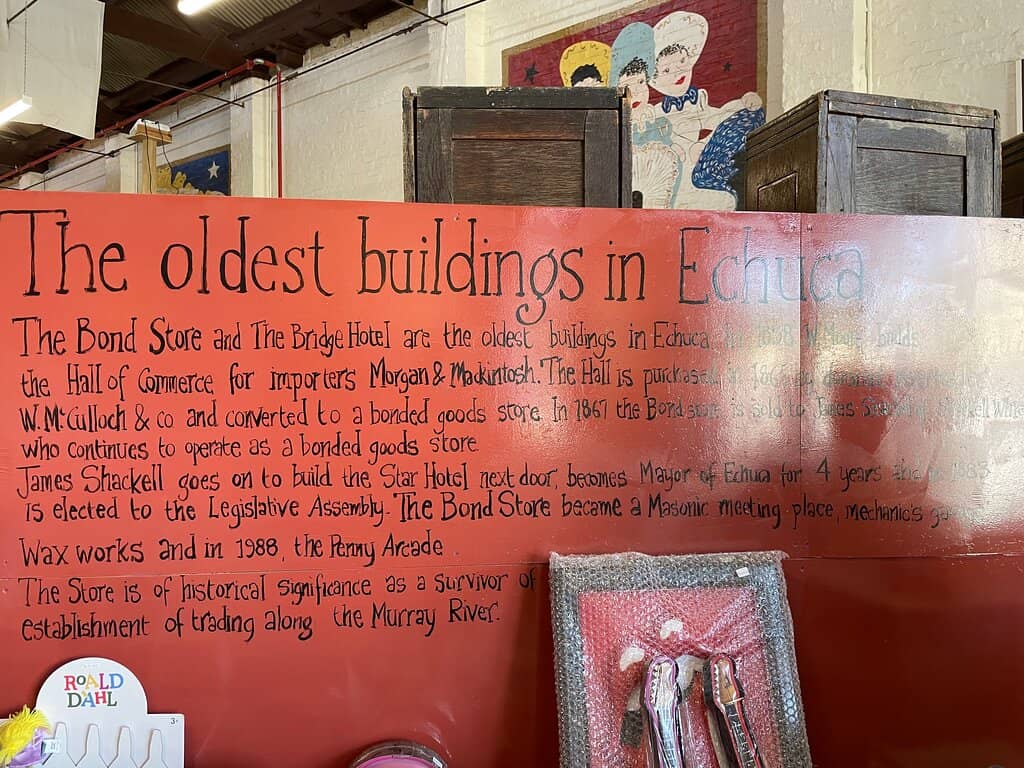 The oldest buildings in Echuca
The Bond Store and The Bridge Hotel are the oldest buildings in Echuca. In 1858 W. Moore builds
the Hall of Commerce for importers Morgan & Mackintosh. The Hall is purchased in
W. McCulloch & co and converted to a bonded goods store. In 1867 the Bond store is sold to James Shackell
who continues to operate as a bonded goods store
James Shackell goes on to build the Star Hotel next door, becomes Mayor of Echuca for 4 years then in 1883
is elected to the Legislative Assembly. The Bond Store became a Masonic meeting place, mechanic's
Wax works and in 1988, the Penny Arcade
The Store is of historical significance as a survivor of
establishment of trading along the Murray River.
ROALD
DAHL
3+